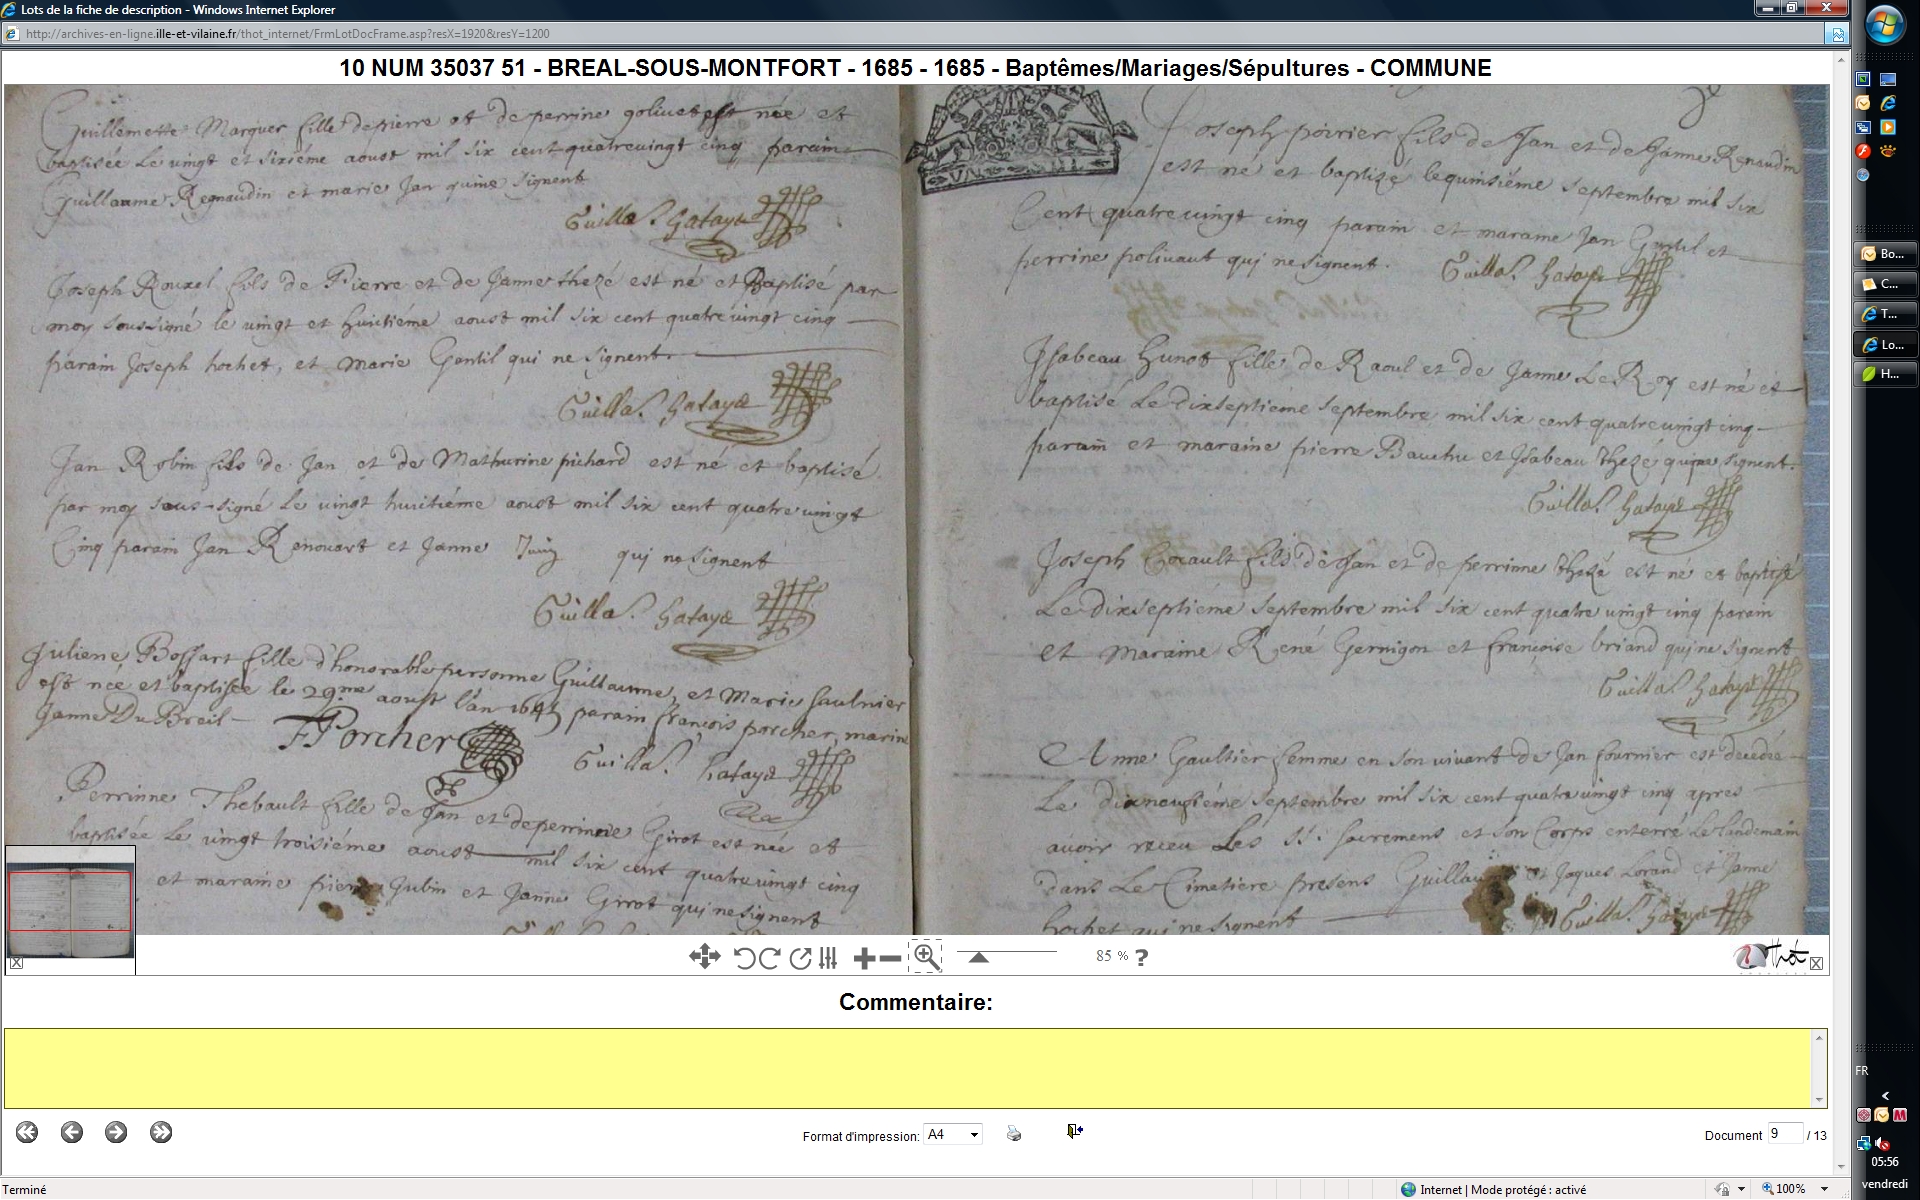 Lots de la fiche de description - Windows Internet Explorer
http://archives-en-ligne.ille-et-vilaine.fr/thot_internet/FrmLotDocFrame.asp?resX=1920&resY=1200
10 NUM 35037 51 - BREAL-SOUS-MONTFORT - 1685 - 1685 - Baptêmes/Mariages/Sépultures - COMMUNE
Guillemette Marquer fille de pierre et de perrine golivet est née et
baptisée le vingt et sixiéme aoust mil six cent quatre vingt cinq parain
Guillaume Regnaudin et marie Jan qui ne signent
Guilla. hataye
Joseph Rouxel fils de Pierre et de Janne thezé est né et Baptisé par
moy soussigné le vingt et huitiéme aoust mil six cent quatre vingt cinq
parain Joseph hochet, et Marie Gentil qui ne signent
Guilla. hataye
Jan Robin fils de Jan et de Mathurine pichard est né et baptisé
par moy sous-signé le vingt huitiéme aoust mil six cent quatre vingt
Cinq parain Jan Renouart et Janne qui ne signent
Guilla. hataye
Juliene Bossart fille d'honorable personne Guillaume, et Marie Saulnier
est née et baptisée le 29me aoust l'an parain françois porcher, marine
Janne Du Breil
FPorcher
Guilla. hataye
Perrinne Thebault fille de Jan et de perrinne Girot est née et
baptisée le vingt troisiéme aoust mil six cent quatre vingt cinq
et maraine pierre Jubin et Janne Girot qui ne signent
Joseph poirier fils de Jan et de Janne Renaudin
est né et baptizé le quinsiéme septembre mil six
Cent quatre vingt cinq parain et maraine Jan Gentil et
perrine polivaut qui ne signent.
Guilla. hataye
Isabeau hunot fille de Raoul et de Janne Le Roy est né et
baptisé Le dixseptiéme septembre mil six cent quatre vingt cinq
parain et maraine pierre et Isabeau thezé qui ne signent.
Guilla. hataye
Joseph Cocault fils de Jan et de perrinne thezé est né et baptisé
Le dixseptiéme septembre mil six cent quatre vingt cinq parain
et Maraine René Gernigon et françoise briand qui ne signent
Guilla. hataye
Anne Gaultier femme en son vivant de Jan fournier est decedée
Le dixneufiéme septembre mil six cent quatre vingt cinq apres
avoir receu Les SS. sacremens et son Corps enterré Le landemain
dans Le Cimetiere presens Guillau et Jaques Lorand et Janne
hochet qui ne signent
Guilla. hataye
85 % ?
Thot
Commentaire:
Format d'impression: A4
Document 9 / 13
Terminé
Internet | Mode protégé : activé
100%
Bo...
C...
T...
Lo...
H...
FR
05:56
vendredi